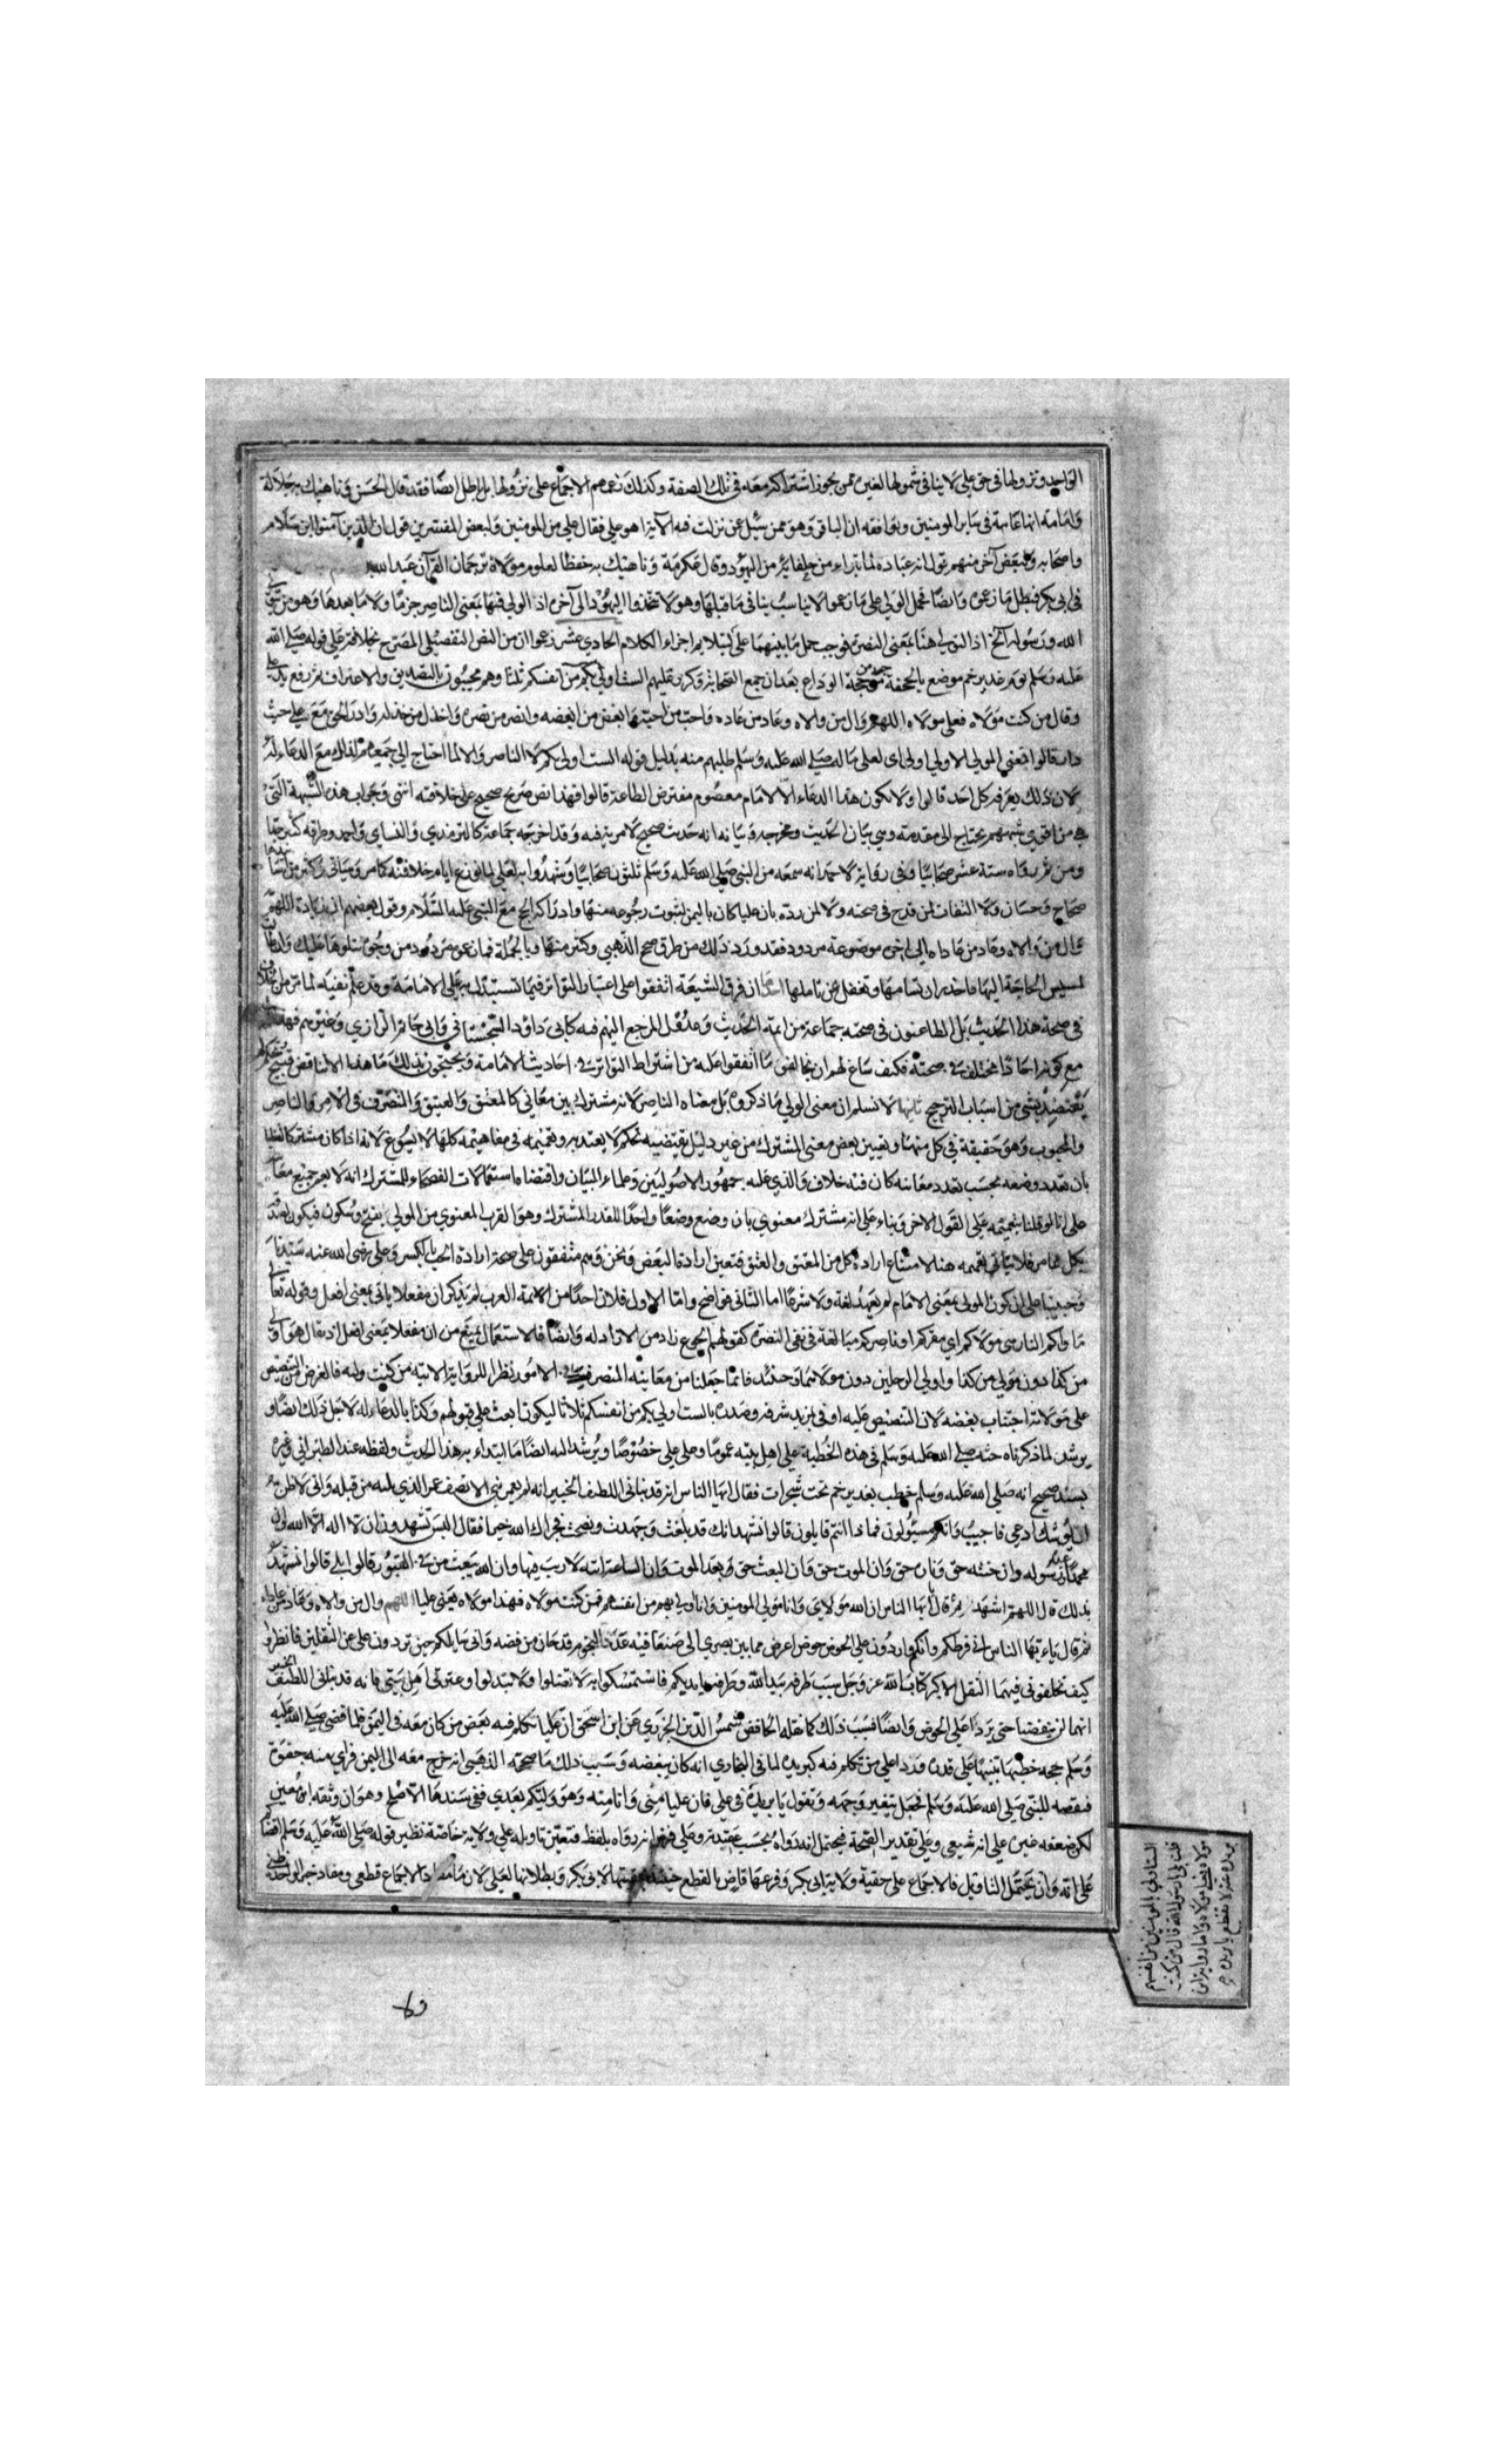 الواحد ونزولها في حق علي لا ينافي شمولها لغيره ممن يجوز اشتراكه معه في تلك الصفة وكذلك زعمهم الاجماع على نزولها باطل ايضا فقد قال الحسن وناهيك به جلالة
وامامة انها عامة في سائر المومنين ويوافقه ان الباقر وهو ممن سئل عن نزلت فيه الآية اهو علي فقال علي من المومنين ولبعض المفسرين قول ان الذين آمنوا ابن سلام
واصحابه ولبعض آخر منهم قول انه عبادة لما تبراء من حلفائه من اليهود وقال عكرمة وناهيك به حفظا لعلوم مولاه ترجمان القرآن عبد الله
في ابي بكر فبطل ما زعموه وايضا فحمل الولي على ما زعموا لا يناسب ينافي ما قبلها وهو لا تتخذوا اليهود الى آخره اذ الولي فيها بمعنى الناصر جزما ولا ما بعدها وهو من يتول
الله ورسوله الخ اذ التولي هنا بمعنى النصرة فوجب حمل ما بينهما على كيلا يم اجزاء الكلام الحادي عشر زعموا ان من النص التفصيلي المصرح بخلافة علي قوله صلى الله
عليه وسلم يوم غدير خم موضع بالجحفة مرجعه من حجة الوداع بعد ان جمع الصحابة وكرر عليهم الست اولى بكم من انفسكم ثلثا وهم يجيبون بالتصديق والاعتراف ثم رفع يد علي
وقال من كنت مولاه فعلي مولاه اللهم وال من والاه وعاد من عاداه واحب من احبه وابغض من ابغضه وانصر من نصره واخذل من خذله وادر الحق معه حيث
دار قالوا فمعنى المولى الاولى اي لعلي ما له صلى الله عليه وسلم عليهم منه بدليل قوله الست اولى بكم لا الناصر والا لما احتاج الى جمعهم كذلك مع الدعاء له
لان ذلك يعرفه كل احد قالوا ولا يكون هذا الدعاء الا لامام معصوم مفترض الطاعة قالوا فهذا نص صريح صحيح على خلافته انتهى وجواب هذه الشبهة التي
هي من اقوى شبههم يحتاج الى مقدمة وهي بيان الحديث ومخرجه وبيانه انه حديث صحيح لا مرية فيه وقد اخرجه جماعة كالترمذي والنساي واحمد وطرقه كثيرة جدا
ومن ثم رواه ستة عشر صحابيا وفي رواية لاحمد انه سمعه من النبي صلى الله عليه وسلم ثلثون صحابيا وشهدوا به لعلي لما نوزع ايام خلافته كما مر وسياتي وكثير من اسانيدها
صحاح وحسان ولا التفات لمن قدح في صحته ولا لمن رده بان عليا كان باليمن لثبوت رجوعه منها وادراكه الحج مع النبي عليه السلام وقول بعضهم ان زيادة اللهم
وال من والاه وعاد من عاداه الى اخره موضوعة مردود فقد ورد ذلك من طرق صحح الذهبي وكثير منها وبالجملة فما زعموه مردود من وجوه نتلوها عليك وان طالت
لمسيس الحاجة اليها فاحذر ان تسامها وتغفل عن تاملها ان فرق الشيعة اتفقوا على اعتبار التواتر فيما يستدل به على الامامة وقد علم نفيه لما مر من الخلاف
في صحة هذا الحديث بل الطاعنون في صحته جماعة من ائمة الحديث وعدوله المرجع اليهم فيه كابي داود السجستاني وابي حاتم الرازي وغيرهم فهذا
مع كونه احادا مختلف في صحته فكيف ساغ لهم ان يخالفوا ما اتفقوا عليه من اشتراط التواتر في احاديث الامامة ويحتجون بذلك ما هذا الا تناقض قبيح
يعتضد بشي من اسباب الترجيح ثانيها لا نسلم ان معنى الولي ما ذكروه بل معناه الناصر لانه مشترك بين معاني كالمعتق والعتيق والمتصرف في الامر والناصر
والمحبوب وهو حقيقة في كل منها وتعيين بعض معنى المشترك من غير دليل يقتضيه تحكم لا يعتد به وتعميمه في مفاهيمه كلها لا يسوغ لانه اذا كان مشتركا لفظا
بان تعدد وضعه بحسب تعدد معانيه كان فيه خلاف والذي عليه جمهور الاصوليين وعلماء البيان واقتضاه استعمالات الفصحاء للمشترك انه لا يعم جميع معانيه
على انا لو قلنا بتعميمه على القول الاخر وبناء على انه مشترك معنوي بان وضع وضعا واحدا للقدر المشترك وهو القرب المعنوي من الولي بفتح وسكون فيكون لصدقه
بكل مما مر فلا يتاتى تعميمه هنا لامتناع ارادة كل من المعتق والعتق فتعين ارادة البعض ونحن وهم متفقون على صحة ارادة الحب بالكسر وعلي رضي الله عنه سيدنا
وحبيبنا على ان كون المولى بمعنى الامام لم يعهد لغة ولا شرعا اما الثاني فواضح واما الاول فلان احدا من الائمة العرب لم يذكر ان مفعلا ياتي بمعنى افعل وقوله تعالى
ماواكم النار هي مولاكم اي مقركم او ناصركم مبالغة في نفي النصرة كقولهم الجوع زاد من لا زاد له وايضا فالاستعمال يمنع من ان مفعلا بمعنى افعل اذ يقال هو اولى
من كذا دون مولى من كذا واولى الرجلين دون مولاهما وحينئذ فانما جعلنا من معانيه المتصرف في الامور نظرا للرواية الاتية من كنت وليه فالغرض من التنصيص
على مولاته اجتناب بغضه لان التنصيص عليه اوفى بمزيد شرفه وصدره بالست اولى بكم من انفسكم ثلاثا ليكون ابعث على قبولهم وكذا بالدعاء له لاجل ذلك ايضا و
يرشد لما ذكرناه حثه صلى الله عليه وسلم في هذه الخطبة على اهل بيته عموما وعلى علي خصوصا ويرشد اليه ايضا ما ابتداء به هذا الحديث ولفظه عند الطبراني وغيره
بسند صحيح انه صلى الله عليه وسلم خطب بغدير خم تحت شجرات فقال ايها الناس انه قد نباني اللطيف الخبير انه لم يعمر نبي الا نصف عمر الذي يليه من قبله واني لاظن
اني يوشك ان ادعى فاجيب وانكم مسئولون فماذا انتم قايلون قالوا نشهد انك قد بلغت وجهدت ونصحت فجزاك الله خيرا فقال اليس تشهدون ان لا اله الا الله وان
محمدا عبده ورسوله وان جنته حق وناره حق وان الموت حق وان البعث حق بعد الموت وان الساعة اتية لا ريب فيها وان الله يبعث من في القبور قالوا بلى قالوا نشهد
بذلك قال اللهم اشهد ثم قال يايها الناس ان الله مولاي وانا مولى المومنين وانا اولى بهم من انفسهم فمن كنت مولاه فهذا مولاه يعني عليا اللهم وال من والاه وعاد من عاداه
ثم قال ياءيها الناس اني فرطكم وانكم واردون علي الحوض حوض اعرض مما بين بصرى الى صنعا فيه عدد النجوم قدحان من فضة واني سايلكم حين تردون علي عن الثقلين فانظروا
كيف تخلفوني فيهما الثقل الاكبر كتاب الله عز وجل سبب طرفه بيد الله وطرفه بايديكم فاستمسكوا به لا تضلوا ولا تبدلوا وعترتي اهل بيتي فانه قد نباني اللطيف الخبير
انهما لن ينقضيا حتى يردا على الحوض وايضا فسبب ذلك كما نقله الحافظ شمس الدين الجزري عن ابن اسحق ان عليا تكلم فيه بعض من كان معه في اليمن فلما قضى صلى الله عليه
وسلم حجه خطبها تنبيها على قدره وردا على من تكلم فيه كبريدة لما في البخاري انه كان يبغضه وسبب ذلك ما صححه الذهبي انه خرج معه الى اليمن فراى منه جفوة
فنقصه للنبي صلى الله عليه وسلم فجعل يتغير وجهه ويقول يا بريدة في علي فان عليا مني وانا منه وهو وليكم بعدي ففي سندها الاصلح وهو ان وثقه ابن معين
لكن ضعفه غيره على انه شيعي وعلى تقدير الصحة فيحتمل انه رواه بحسب عقيدته وعلى فرض انه رواه بلفظه فتعين تاويله على ولاية خاصة نظير قوله صلى الله عليه وسلم اقضاكم
علي انه وان يحتمل التاويل فالاجماع على حقية ولاية ابي بكر وفرعها قاض بالقطع بحقيتها لابي بكر وبطلانها لعلي لان مفاد الاجماع قطعي ومفاد خبر الواحد ظني
بريدة عشرة لا تقطع يا بريدة
مولاه فعلي مولاه واما رواية
قلت بلى يا رسول الله قال من كنت
الست اولى بالمومنين من انفسهم